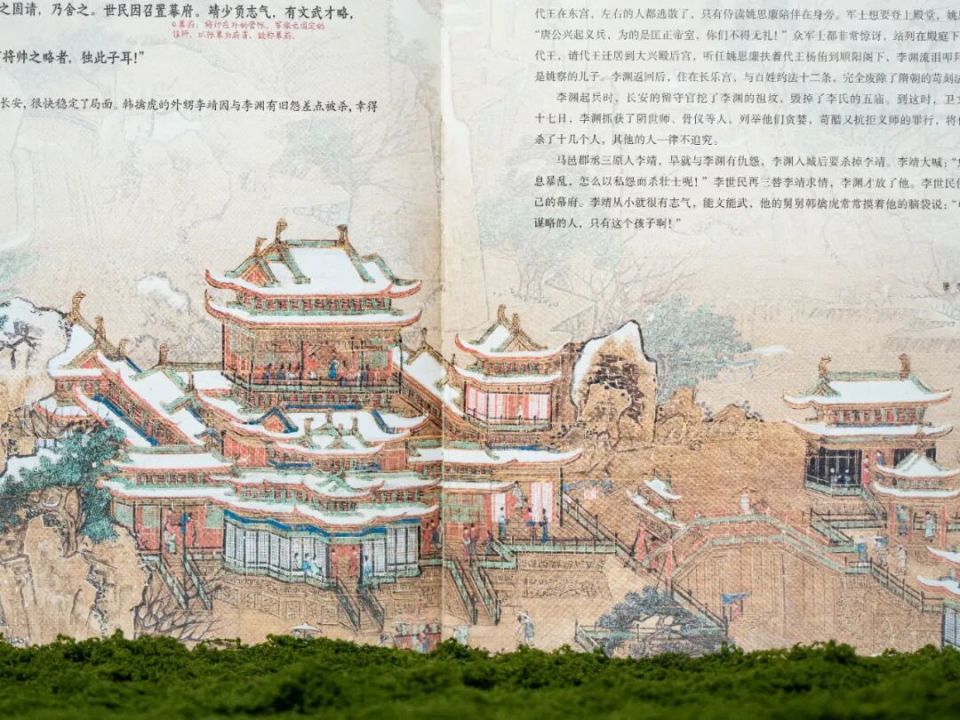 之固请，乃舍之。世民因召置幕府。靖少负志气，有文武才略，
○幕府：将帅在外的营帐。军旅无固定的
住所，以帐幕为府署，故称幕府。
将帅之略者，独此子耳！”
长安，很快稳定了局面。韩擒虎的外甥李靖因与李渊有旧怨差点被杀，幸得
代王在东宫，左右的人都逃散了，只有侍读姚思廉陪伴在身旁。军士想要登上殿堂，姚思
“唐公兴起义兵，为的是匡正帝室，你们不得无礼！”众军士都非常惊讶，站列在殿庭下
代王，请代王迁居到大兴殿后宫，听任姚思廉扶着代王杨侑到顺阳阁下，李渊流泪叩拜
是姚察的儿子。李渊返回后，住在长乐宫，与百姓约法十二条，完全废除了隋朝的苛刻法
李渊起兵时，长安的留守官挖了李渊的祖坟，毁掉了李氏的五庙。到这时，卫文
十七日，李渊抓获了阴世师、骨仪等人，列举他们贪婪、苛酷又抗拒义师的罪行，将他
杀了十几个人，其他的人一律不追究。
马邑郡丞三原人李靖，早就与李渊有仇怨，李渊入城后要杀掉李靖。李靖大喊：“
息暴乱，怎么以私怨而杀壮士呢！”李世民再三替李靖求情，李渊才放了他。李世民
己的幕府。李靖从小就很有志气，能文能武，他的舅舅韩擒虎常常摸着他的脑袋说：“
谋略的人，只有这个孩子啊！”